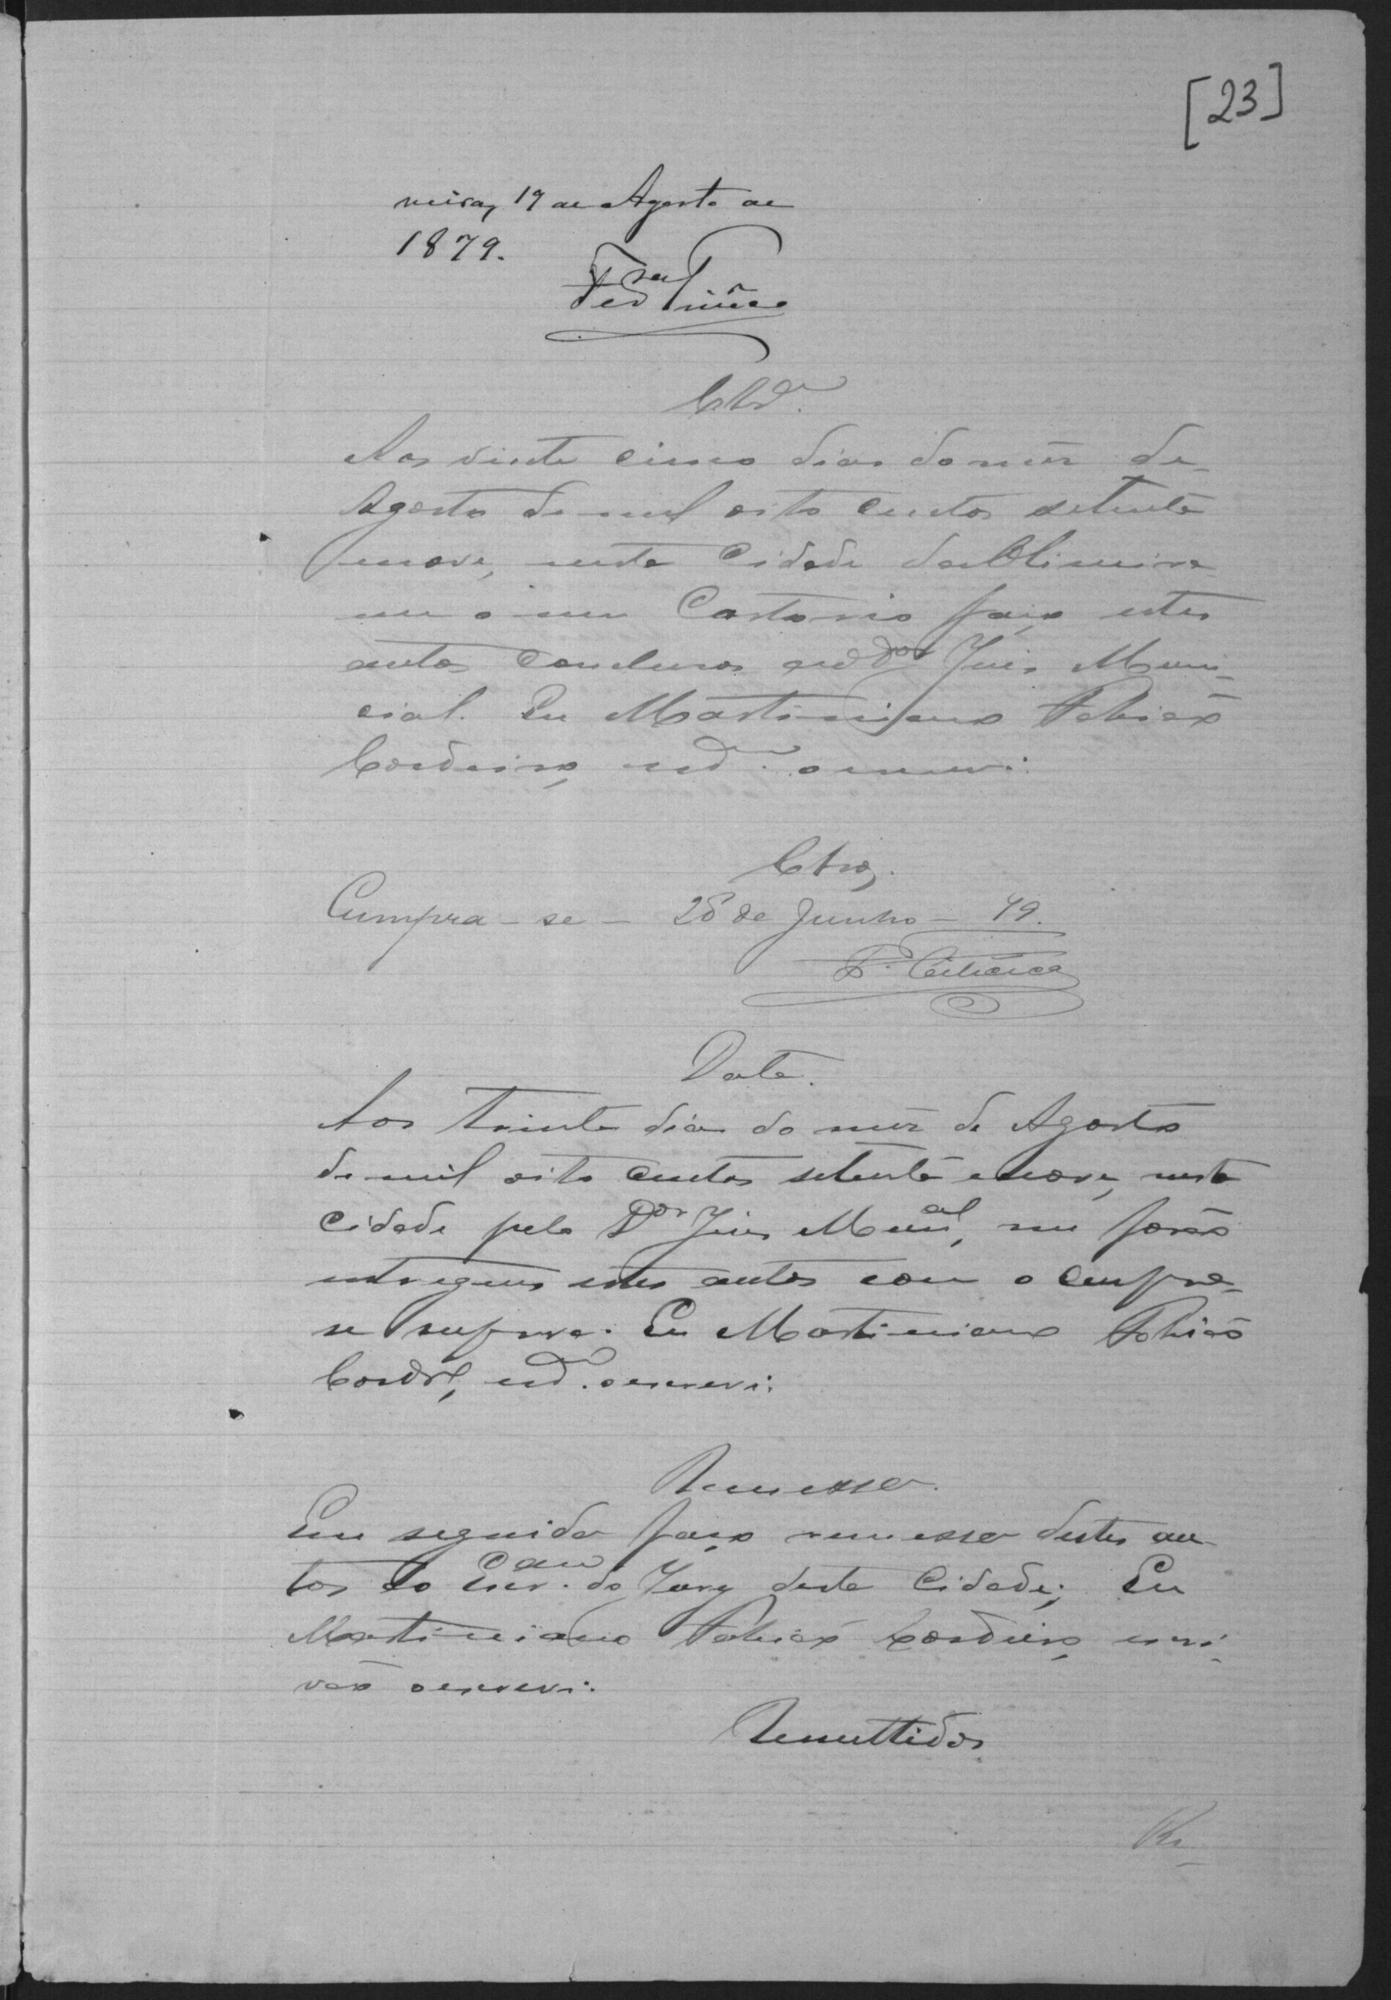 [23]
meira, 19 de Agosto de
1879.
Clsᵐ.
Aos vinte cinco dias do mes de
Agosto de mil oito centos setenta
enove, nesta Cidade da Olimeira
em o meu Cartorio faço estes
autos conclusos ao Dor Juis Muni-
cial. Eu Martiniano Tobias
Cordeiro, escrᵐ. o escrevi.
Clsos.
Cumpra-se - 26 de Junho - 79.
Data.
Aos trinta dias do mes de Agosto
de mil oito centos setenta enove, nesta
Cidade pelo Dor Juis Munal, me forão
entregues estes autos com o cumpra-
se supra. Eu Martiniano Tobias
Cordrº, escrᵐ. o escrevi.
Remessa.
Em seguida faço remessa destes au-
tos ao Escram. do Jury desta Cidade; Eu
Martiniano Tobias Cordeiro, escri-
vão o escrevi.
Remettidos.
Re-